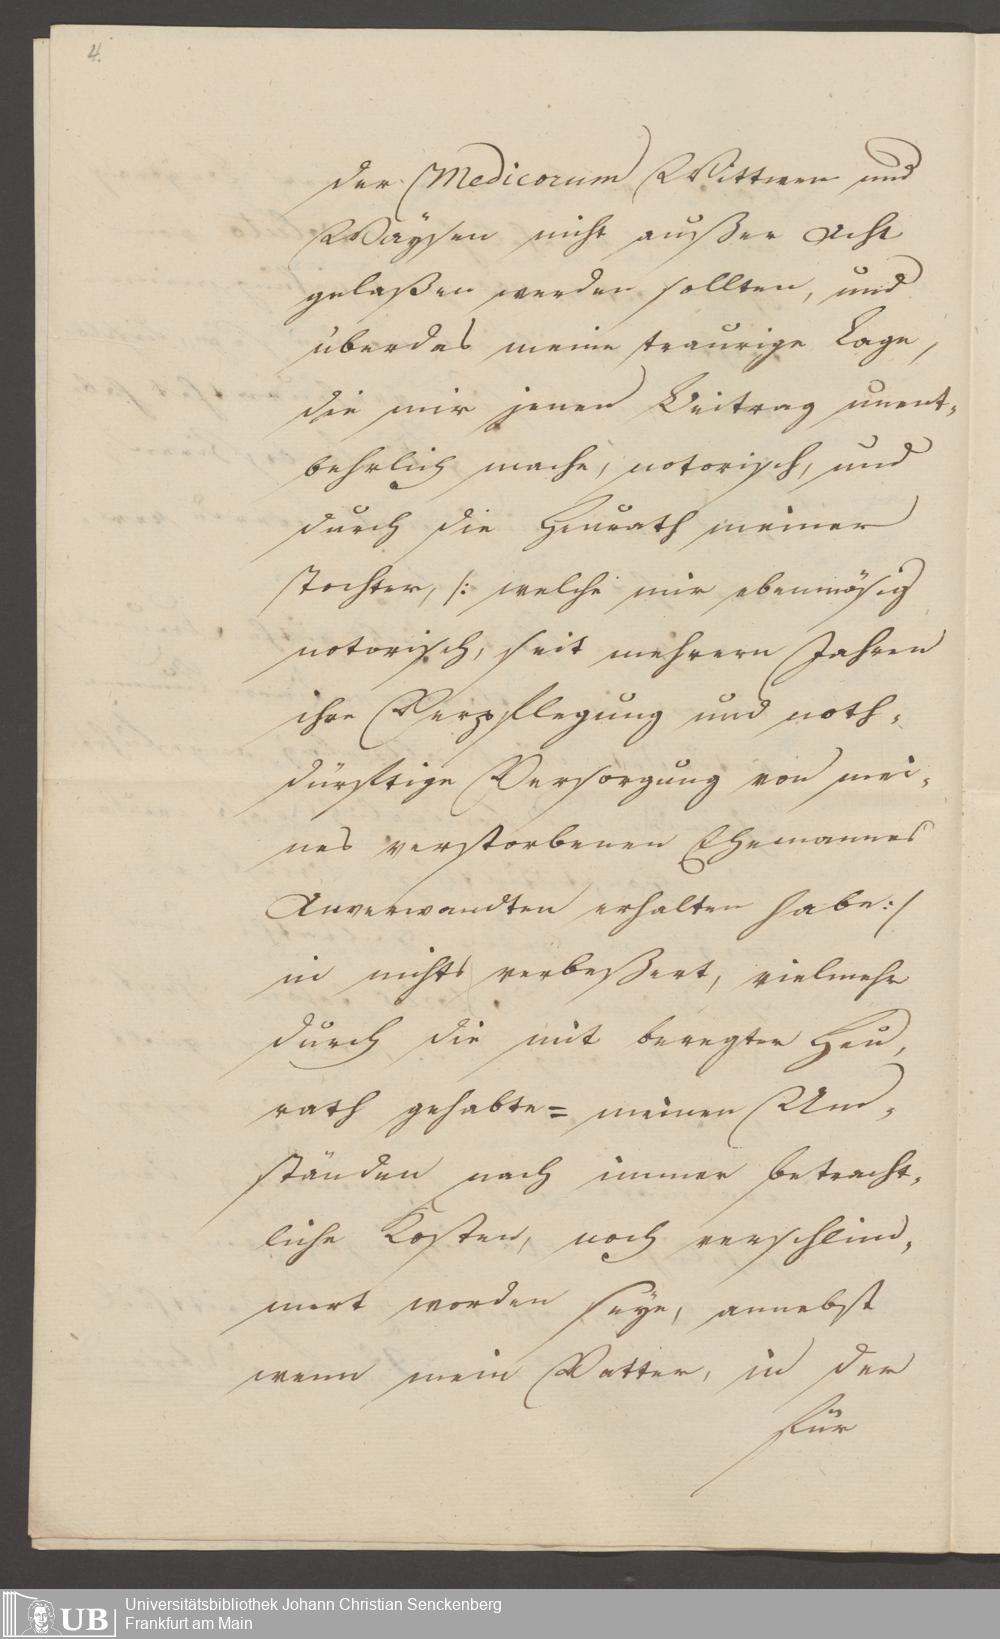 4.
der Medicorum Wittwen und
Waÿsen nicht außer Acht
gelaßen werden sollten, und
überdas meine traurige Lage,
die mir jenen Beitrag unent-
behrlich mache, notorisch, und
durch die Heurath meiner
Tochter, /: welche mir ebenmäsig
notorisch, seit mehrern Jahren
ihre Verpflegung und noth-
dürftige Versorgung von mei-
nes verstorbenen Ehemannes
Anverwandten erhalten habe :/
in nichts verbeßert, vielmehr
durch die mit beregter Heu-
rath gehabte = meinen Um-
ständen nach immer betracht-
liche Kosten, noch verschlim-
mert worden seye, annebst
wenn mein Vatter, in der
für
UB
Universitätsbibliothek Johann Christian Senckenberg
Frankfurt am Main